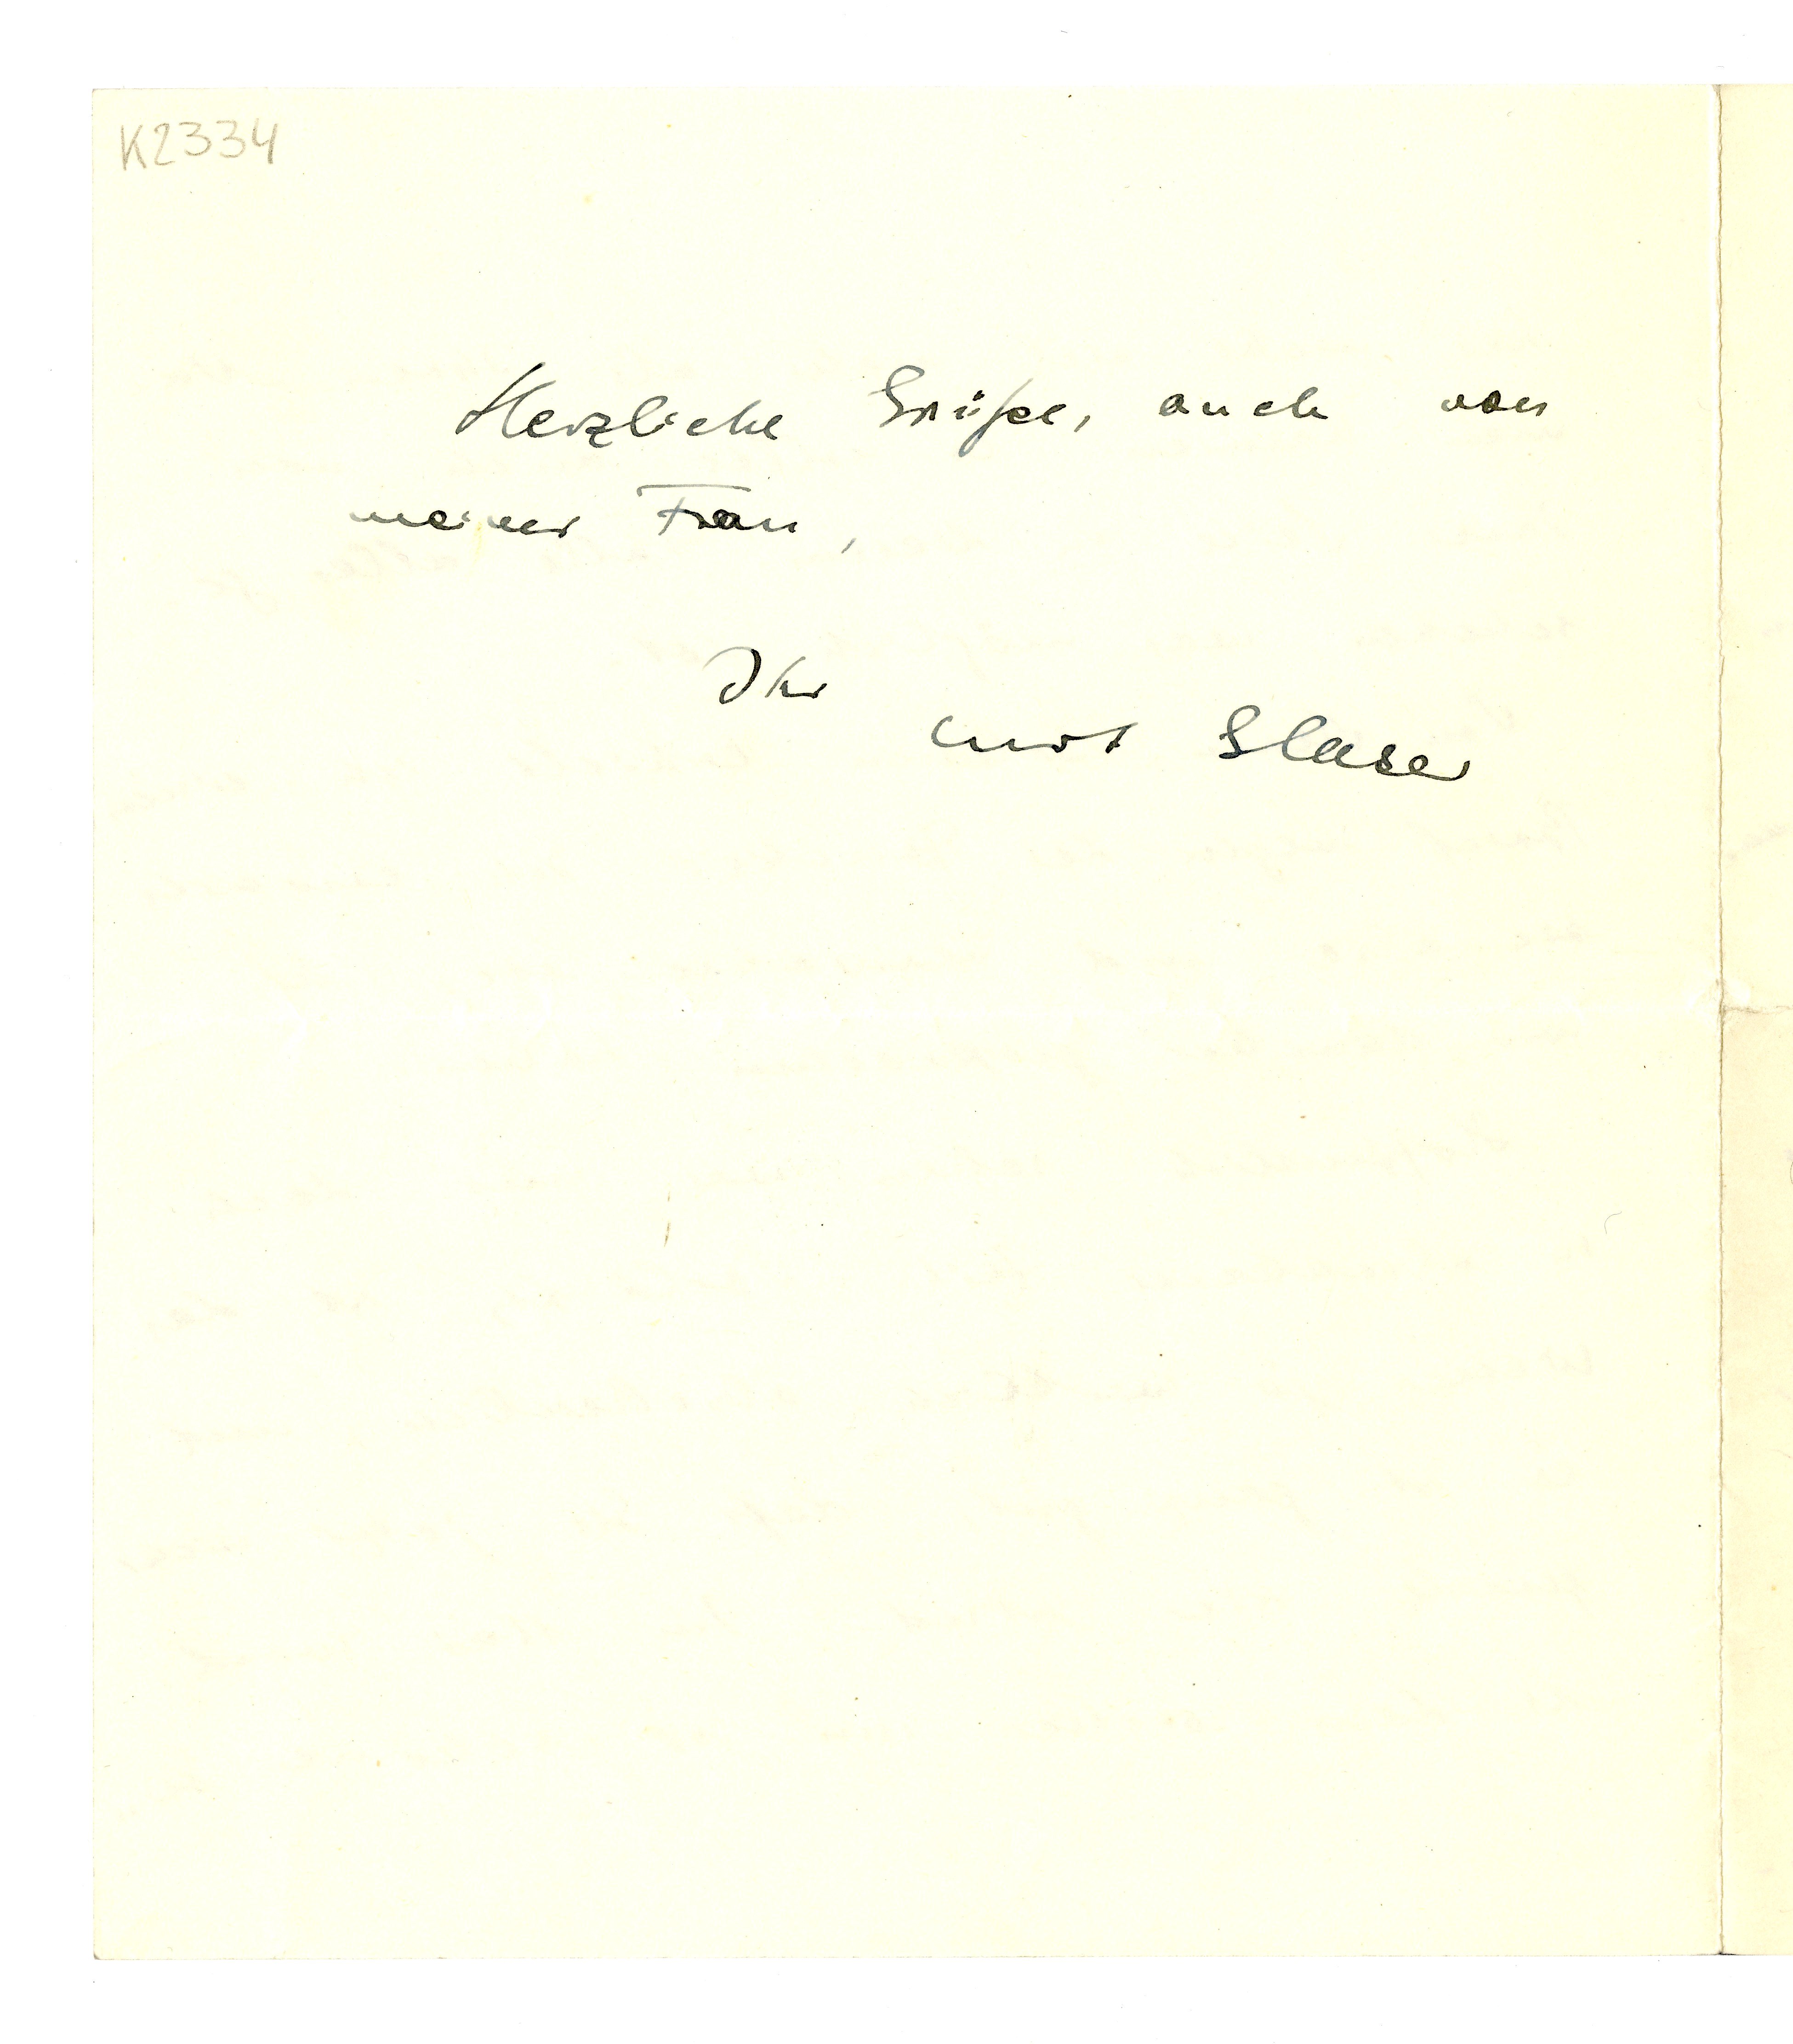 K2334
Herzliche Grüße, auch von
meiner Frau,
Ihr
Curt Glaser